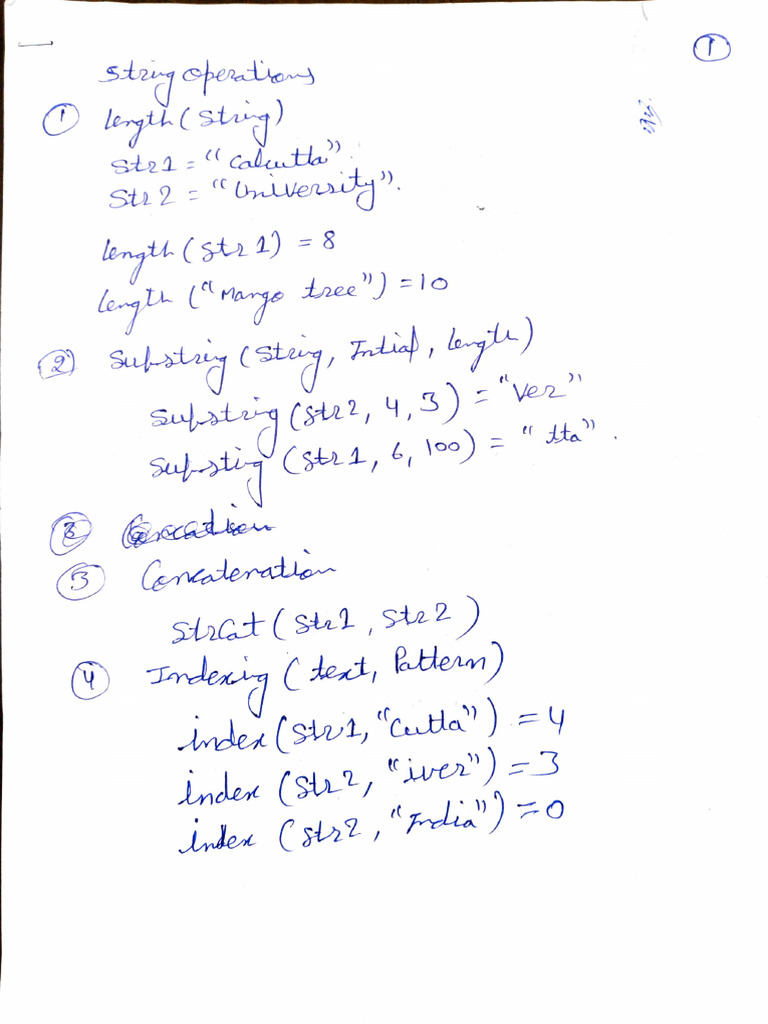 ①
String operations
① length (String)
Str1 = "Calcutta".
Str2 = "University".
length (Str1) = 8
length ("Mango tree") = 10
② Substring (String, Intial, length)
Substring (Str2, 4, 3) = "Ver"
Substig (Str1, 6, 100) = "tta".
③ Concatenation
StrCat (Str1, Str2)
④ Indexing (text, Pattern)
index (Str1, "Cutta") = 4
index (Str2, "iver") = 3
index (Str2, "India") = 0